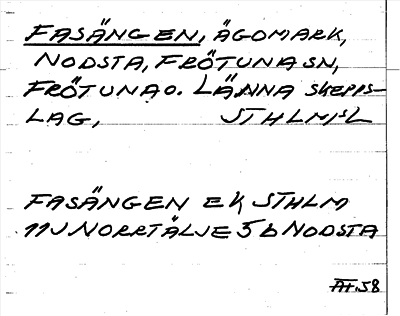 FASÄNGEN, ÄGOMARK,
NODSTA, FRÖTUNA SN,
FRÖTUNA O. LÄNNA SKEPPS-
LAG, STHLMS L
FASÄNGEN EK STHLM
11J NORRTÄLJE 5b NODSTA